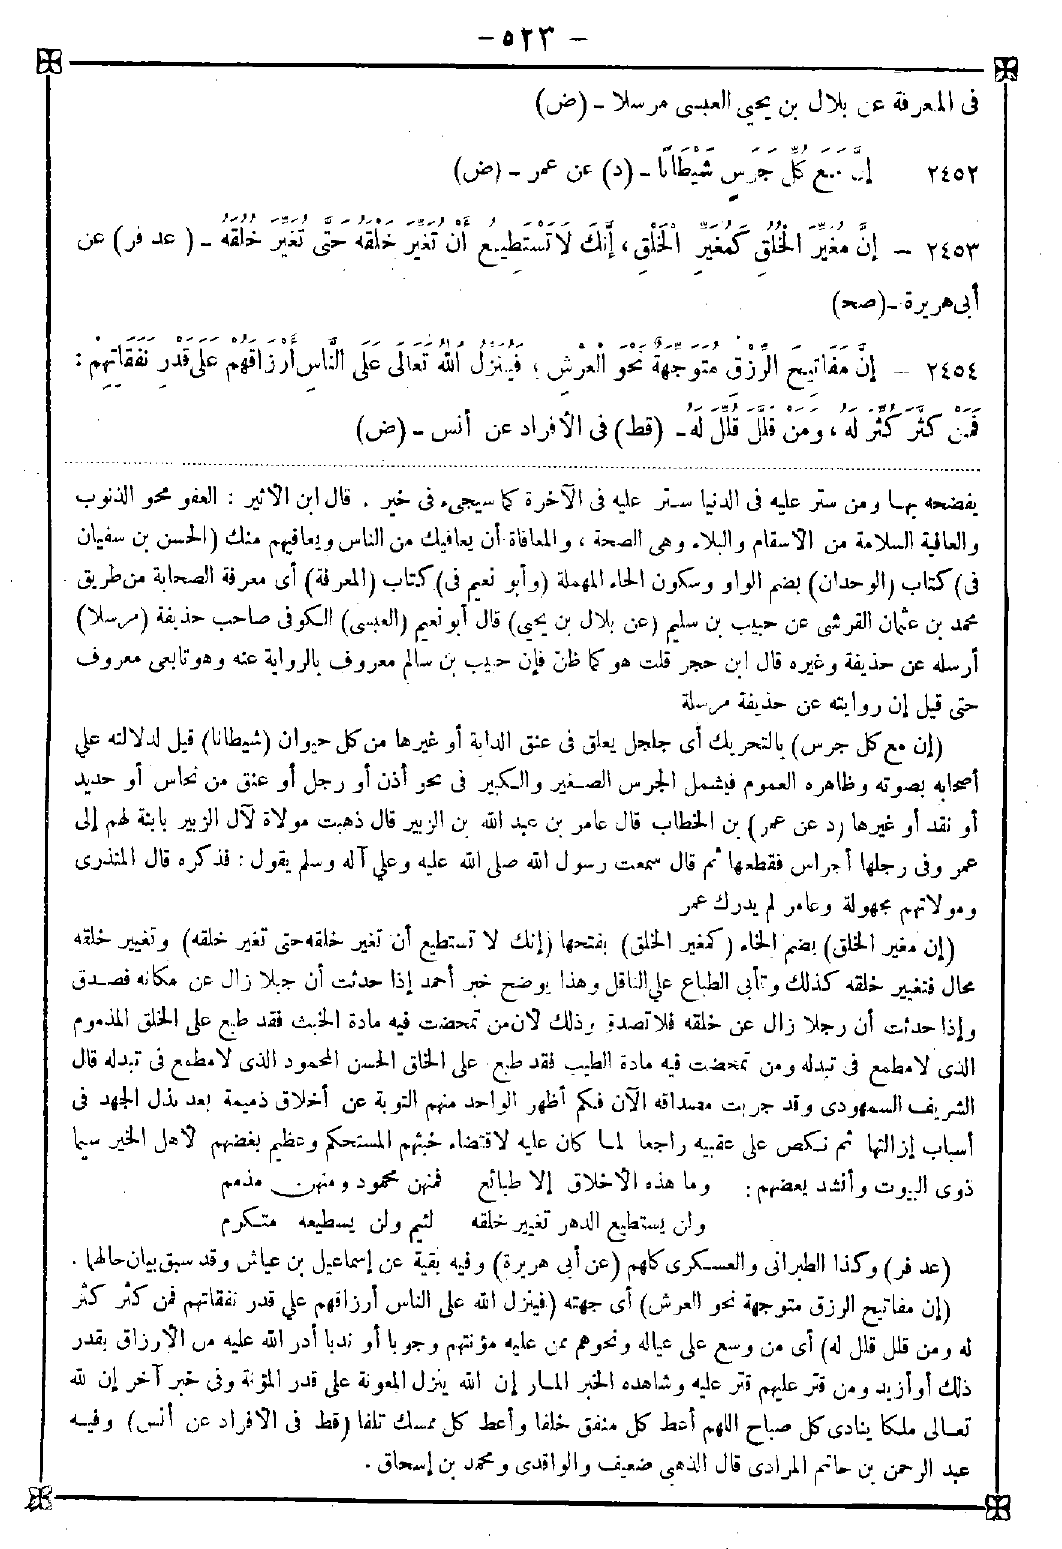 - ٥٢٣ -
فى المعرفة عن بلال بن يحيى العبسى مرسلا - (ض)
٢٤٥٢ إِنَّ مَعَ كُلِّ جَرَسٍ شَيْطَانًا - (د) عن عمر - (ض)
٢٤٥٣ - إِنَّ مُغَيِّرَ الْخُلُقِ كَمُغَيِّرِ الْخَلْقِ، إِنَّكَ لَا تَسْتَطِيعُ أَنْ تُغَيِّرَ خُلُقَهُ حَتَّى تُغَيِّرَ خَلْقَهُ - ( عد فر) عن
أبى هريرة - (صح)
٢٤٥٤ - إِنَّ مَفَاتِيحَ الرِّزْقِ مُتَوَجِّهَةٌ نَحْوَ الْعَرْشِ، فَيُنْزِلُ اللهُ تَعَالَى عَلَى النَّاسِ أَرْزَاقَهُمْ عَلَى قَدْرِ نَفَقَاتِهِمْ:
فَمَنْ كَثَّرَ كُثِّرَ لَهُ، وَمَنْ قَلَّلَ قُلِّلَ لَهُ - (قط) فى الأفراد عن أنس - (ض)
يفضحه بها ومن ستر عليه فى الدنيا ستر عليه فى الآخرة كما سيجىء فى خبر . قال ابن الأثير : العفو محو الذنوب
والعافية السلامة من الأسقام والبلاء وهى الصحة ، والمعافاة أن يعافيك من الناس ويعافيهم منك (الحسن بن سفيان
فى) كتاب (الوحدان) بضم الواو وسكون الحاء المهملة (وأبو نعيم فى) كتاب (المعرفة) أى معرفة الصحابة من طريق
محمد بن عثمان القرشى عن حبيب بن سليم (عن بلال بن يحيى) قال أبو نعيم (العبسى) الكوفى صاحب حذيفة (مرسلا)
أرسله عن حذيفة وغيره قال ابن حجر قلت هو كما ظن فإن حبيب بن سالم معروف بالرواية عنه وهو تابعى معروف
حتى قيل إن روايته عن حذيفة مرسلة
(إن مع كل جرس) بالتحريك أى جلجل يعلق فى عنق الدابة أو غيرها من كل حيوان (شيطانا) قيل لدلالته على
أصحابه بصوته وظاهره العموم فيشمل الجرس الصغير والكبير فى نحو أذن أو رجل أو عنق من نحاس أو حديد
أو نقد أو غيرها (د عن عمر) بن الخطاب قال عامر بن عبد الله بن الزبير قال ذهبت مولاة لآل الزبير بابنة لهم إلى
عمر وفى رجلها أجراس فقطعها ثم قال سمعت رسول الله صلى الله عليه وعلى آله وسلم يقول : فذكره قال المنذرى
ومولاتهم مجهولة وعامر لم يدرك عمر
(إن مغير الخلق) بضم الخاء (كمغير الخلق) بفتحها (إنك لا تستطيع أن تغير خلقه حتى تغير خلقه) وتغيير خلقه
محال فتغيير خلقه كذلك وتأبى الطباع على الناقل وهذا يوضح خبر أحمد إذا حدثت أن جبلا زال عن مكانه فصدق
وإذا حدثت أن رجلا زال عن خلقه فلا تصدق وذلك لأن من تمحضت فيه مادة الخبث فقد طبع على الخلق المذموم
الذى لا مطمع فى تبدله ومن تمحضت فيه مادة الطيب فقد طبع على الخلق الحسن المحمود الذى لا مطمع فى تبدله قال
الشريف السمهودى وقد جربت مصداقه الآن فكم أظهر الواحد منهم التوبة عن أخلاق ذميمة بعد بذل الجهد فى
أسباب إزالتها ثم نكص على عقبيه راجعا لما كان عليه لاقتضاء خبثهم المستحكم وعظيم بغضهم لأهل الخير سيما
ذوى البيوت وأنشد بعضهم: وما هذه الأخلاق إلا طبائع فمنهن محمود ومنهن مذمم
ولن يستطيع الدهر تغيير خلقه لئيم ولن يسطيعه متكرم
(عد فر) وكذا الطبرانى والعسكرى كلهم (عن أبى هريرة) وفيه بقية عن إسماعيل بن عياش وقد سبق بيان حالهما .
(إن مفاتيح الرزق متوجهة نحو العرش) أى جهته (فينزل الله على الناس أرزاقهم على قدر نفقاتهم فمن كثر كثر
له ومن قلل قلل له) أى من وسع على عياله ونحوهم ممن عليه مؤنتهم وجوبا أو ندبا أدر الله عليه من الأرزاق بقدر
ذلك أو أزيد ومن قتر عليهم قتر عليه وشاهده الخبر المار إن الله ينزل المعونة على قدر المؤنة وفى خبر آخر إن لله
تعالى ملكا ينادى كل صباح اللهم أعط كل منفق خلفا وأعط كل ممسك تلفا (قط فى الأفراد عن أنس) وفيه
عبد الرحمن بن حاتم المرادى قال الذهبى ضعيف والواقدى ومحمد بن إسحاق .